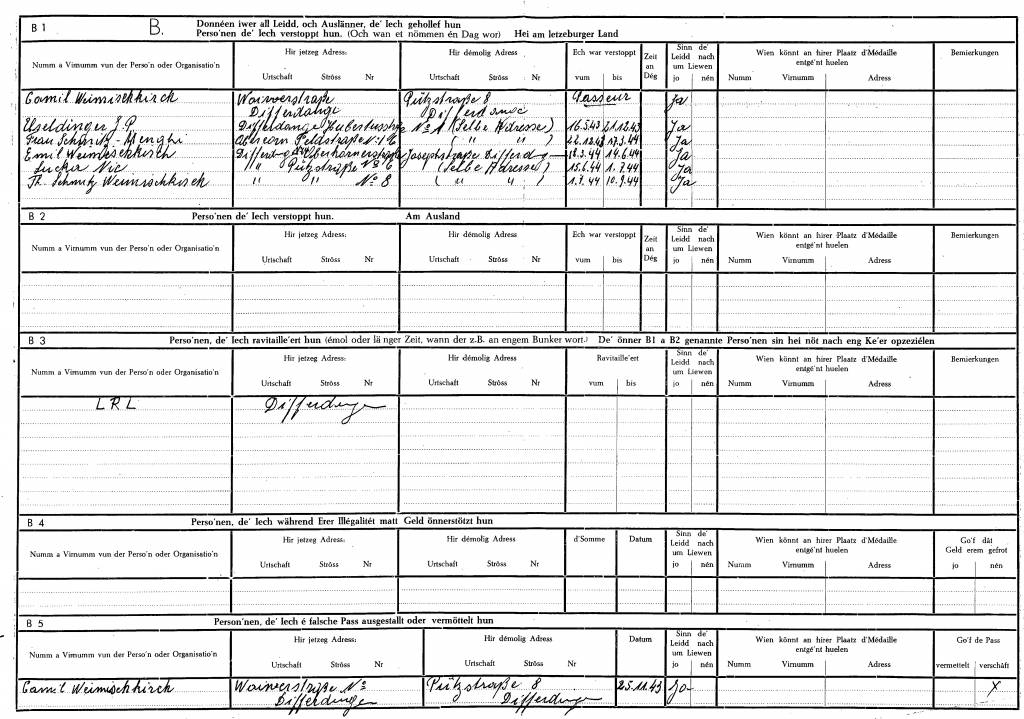 B 1 B. Donnéen iwer all Leidd, och Auslänner, de' Iech gehollef hun
Perso'nen de' Iech verstoppt hun. (Och wan et nömmen én Dag wor) Hei am letzeburger Land
Numm a Virnumm vun der Perso'n oder Organisatio'n Hir jetzeg Adress: Hir démolig Adress Ech war verstoppt Zeit an Dég Sinn de' Leidd nach um Liewen Wien könnt an hirer Plaatz d'Médaille entgé'nt huelen Bemierkungen
Urtschaft Ströss Nr Urtschaft Ströss Nr vum bis jo nén Numm Virnumm Adress
Camil Weimischkirch Woiwerstraße Pützstraße 8 Passeur ja
Differdange Differdange
Useldinger J.P. Differdange Hubertusstraße No 1 (Selbe Adresse) 16.5.43 21.12.43 Ja
Frau Schmitz-Menghi Obercorn Feldstraße ( " " ) 22.12.43 17.3.44 Ja
Emil Weimischkirch Josephstraße Differdg 18.3.44 14.6.44 Ja
Lucka Nic " Pützstraße No 8 (Selbe Adresse) 15.6.44 1.7.44 Ja
Th. Schmitz Weimischkirch " " No 8 ( " " ) 1.7.44 10.9.44 Ja
B 2 Perso'nen de' Iech verstoppt hun. Am Ausland
Numm a Virnumm vun der Perso'n oder Organisatio'n Hir jetzeg Adress: Hir démolig Adress Ech war verstoppt Zeit an Dég Sinn de' Leidd nach um Liewen Wien könnt an hirer Plaatz d'Médaille entgé'nt huelen Bemierkungen
Urtschaft Ströss Nr Urtschaft Ströss Nr vum bis jo nén Numm Virnumm Adress
B 3 Perso'nen, de' Iech ravitaille'ert hun (émol oder länger Zeit, wann der z.B. an engem Bunker wort.) De' önner B1 a B2 genannte Perso'nen sin hei nöt nach eng Ke'er opzeziélen
Numm a Virnumm vun der Perso'n oder Organisatio'n Hir jetzeg Adress: Hir démolig Adress Ravitaille'ert Sinn de' Leidd nach um Liewen Wien könnt an hirer Plaatz d'Médaille entgé'nt huelen Bemierkungen
Urtschaft Ströss Nr Urtschaft Ströss Nr vum bis jo nén Numm Virnumm Adress
LRL Differdange
B 4 Perso'nen, de' Iech während Erer Illégalitét matt Geld önnerstötzt hun
Numm a Virnumm vun der Perso'n oder Organisatio'n Hir jetzeg Adress: Hir démolig Adress d'Somme Datum Sinn de' Leidd nach um Liewen Wien könnt an hirer Plaatz d'Médaille entgé'nt huelen Go'f dât Geld erem gefrot
Urtschaft Ströss Nr Urtschaft Ströss Nr jo nén Numm Virnumm Adress jo nén
B 5 Person'nen, de' Iech é falsche Pass ausgestallt oder vermöttelt hun
Numm a Virnumm vun der Perso'n oder Organisatio'n Hir jetzeg Adress: Hir démolig Adress Datum Sinn de' Leidd nach um Liewen Wien könnt an hirer Plaatz d'Médaille entgé'nt huelen Go'f de Pass
Urtschaft Ströss Nr Urtschaft Ströss Nr jo nén Numm Virnumm Adress vermettelt verschâft
Camil Weimischkirch Woiwerstraße No Pützstraße 8 25.11.43 Jo X
Differdingen Differdingen